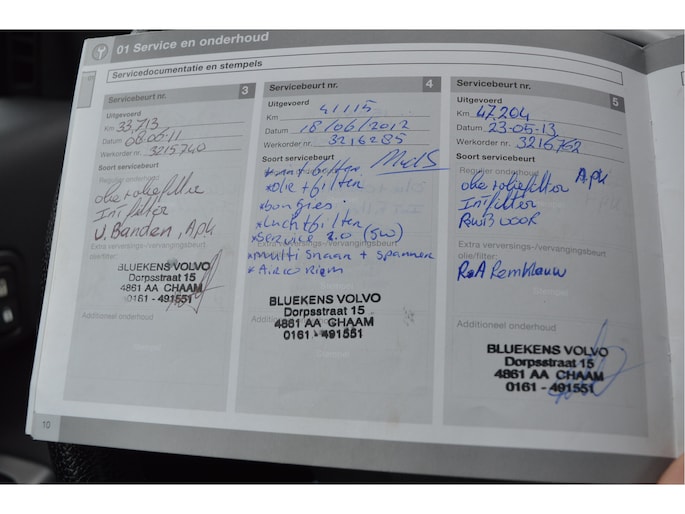 01 Service en onderhoud
Servicedocumentatie en stempels
Servicebeurt nr. 3
Uitgevoerd
Km 33,713
Datum 08-05-11
Werkorder nr. 3215740
Soort servicebeurt
Regulier onderhoud
olie + oliefilter
Int filter
v. Banden, Apk
Extra verversings-/vervangingsbeurt
olie/filter:
BLUEKENS VOLVO
Dorpsstraat 15
4861 AA CHAAM
0161 - 491551
Additioneel onderhoud
Stempel
10
Servicebeurt nr. 4
Uitgevoerd
Km 41115
Datum 18/06/2012
Werkorder nr. 3216285
Soort servicebeurt
*olie + filter
*bougies.
*luchtfilter
*Service 2.0 (5W)
*multi snaar + spanner
*Airco riem
BLUEKENS VOLVO
Dorpsstraat 15
4861 AA CHAAM
0161 - 491551
Stempel
Servicebeurt nr. 5
Uitgevoerd
Km 47.204
Datum 23-05-13
Werkorder nr. 3216762
Soort servicebeurt
Regulier onderhoud
olie + oliefilter Apk
Int filter
Extra verversings-/vervangingsbeurt
olie/filter:
R.A Remklauw
Stempel
Additioneel onderhoud
BLUEKENS VOLVO
Dorpsstraat 15
4861 AA CHAAM
0161 - 491551